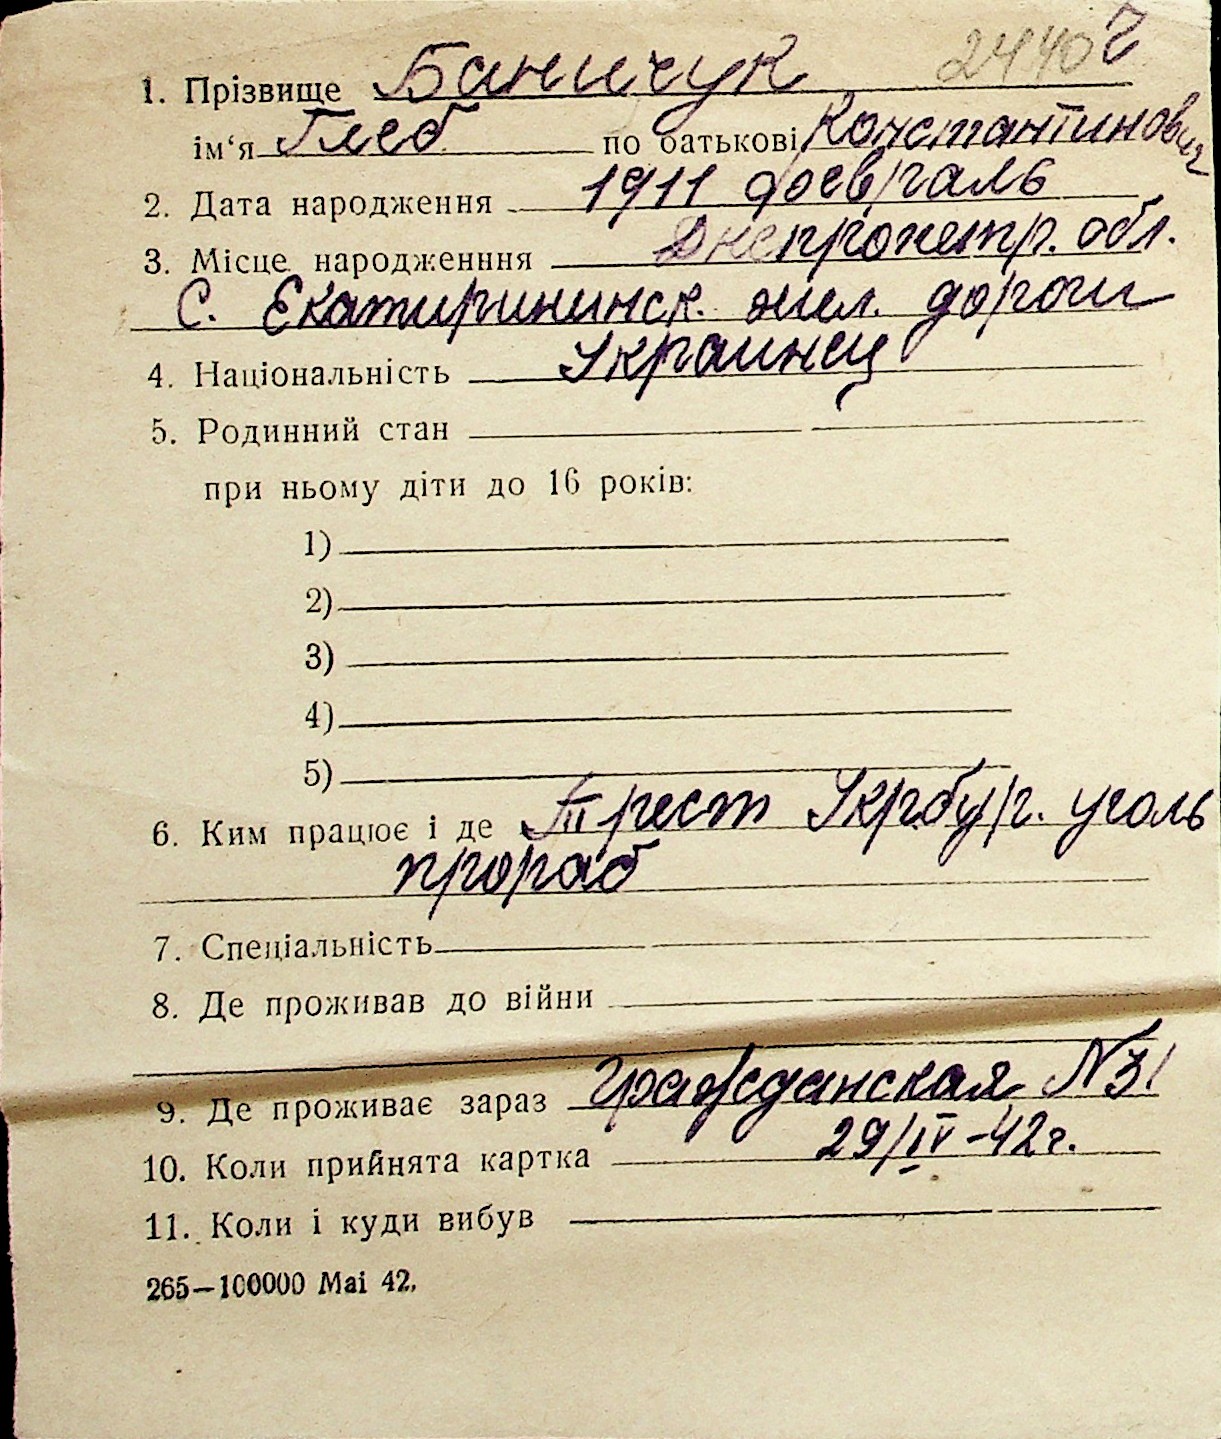 2440 г
1. Прізвище Баничук
ім‘я Глеб по батькові Константинович
2. Дата народження 1911 февраль
3. Місце народженння Днепропетр. обл.
С. Екатирининск. жел. дороги
4. Національність Украинец
5. Родинний стан
при ньому діти до 16 років:
1)
2)
3)
4)
5)
6. Ким працює і де Трест Укрбург. уголь
прораб
7. Спеціальність
8. Де проживав до війни
9. Де проживає зараз Гражданская N31
10. Коли прийнята картка 29/IV-42г.
11. Коли і куди вибув
265—100000 Mai 42.